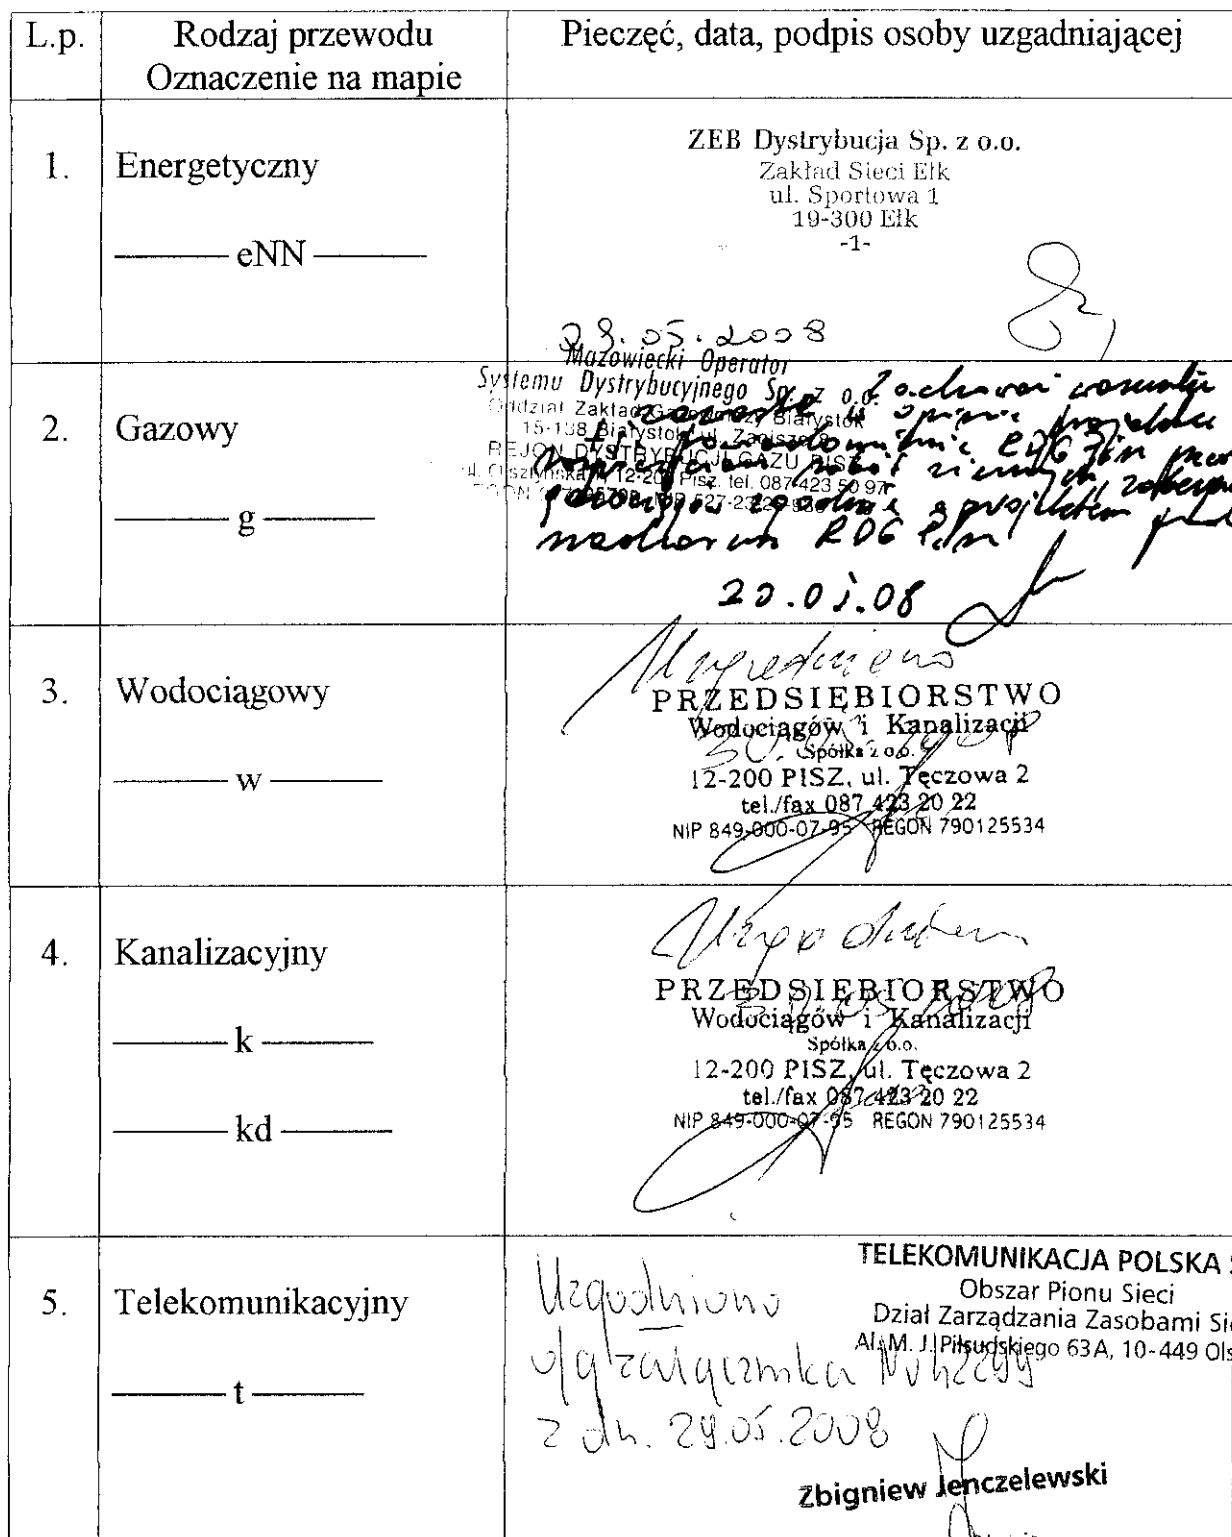 L.p.
Rodzaj przewodu
Oznaczenie na mapie
Pieczęć, data, podpis osoby uzgadniającej
1.
Energetyczny
eNN
ZEB Dystrybucja Sp. z o.o.
Zakład Sieci Ełk
ul. Sportowa 1
19-300 Ełk
-1-
05.2008
2.
Gazowy
g
Mazowiecki Operator
Systemu Dystrybucyjnego Sp. z o.o.
Oddział Zakład Białystok
15-138 Białystok ul.
REJON DYSTRYBUCJI GAZU PISZ
12-200 Pisz, tel. 087 423 50 97
Zachować warunki
zawarte w opinii
RDG
zgodnie z projektem pod
nadzorem RDG Pisz
3.
Wodociągowy
w
Uzgodniono
PRZEDSIĘBIORSTWO
Wodociągów i Kanalizacji
Spółka z o.o.
12-200 PISZ, ul. Tęczowa 2
tel./fax 087 423 20 22
NIP 849-000-07-95 REGON 790125534
4.
Kanalizacyjny
k
kd
PRZEDSIĘBIORSTWO
Wodociągów i Kanalizacji
Spółka z o.o.
12-200 PISZ, ul. Tęczowa 2
tel./fax 087 423 20 22
NIP 849-000-07-95 REGON 790125534
5.
Telekomunikacyjny
t
TELEKOMUNIKACJA POLSKA S
Obszar Pionu Sieci
Dział Zarządzania Zasobami Sie
Al. M. J. Piłsudskiego 63A, 10-449 Ols
Uzgodniono
wg załącznika
z dn. 29.05.2008
Zbigniew Jenczelewski